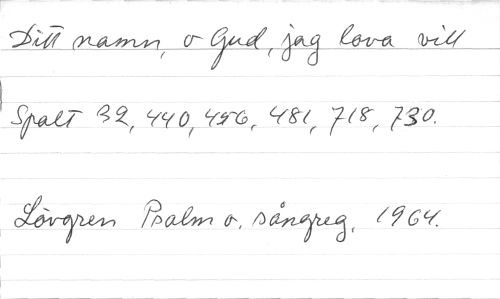 Ditt namn, o Gud, jag lova vill
Spalt 32, 440, 456, 481, 718, 730.
Lövgren Psalm o. sångreg. 1964.